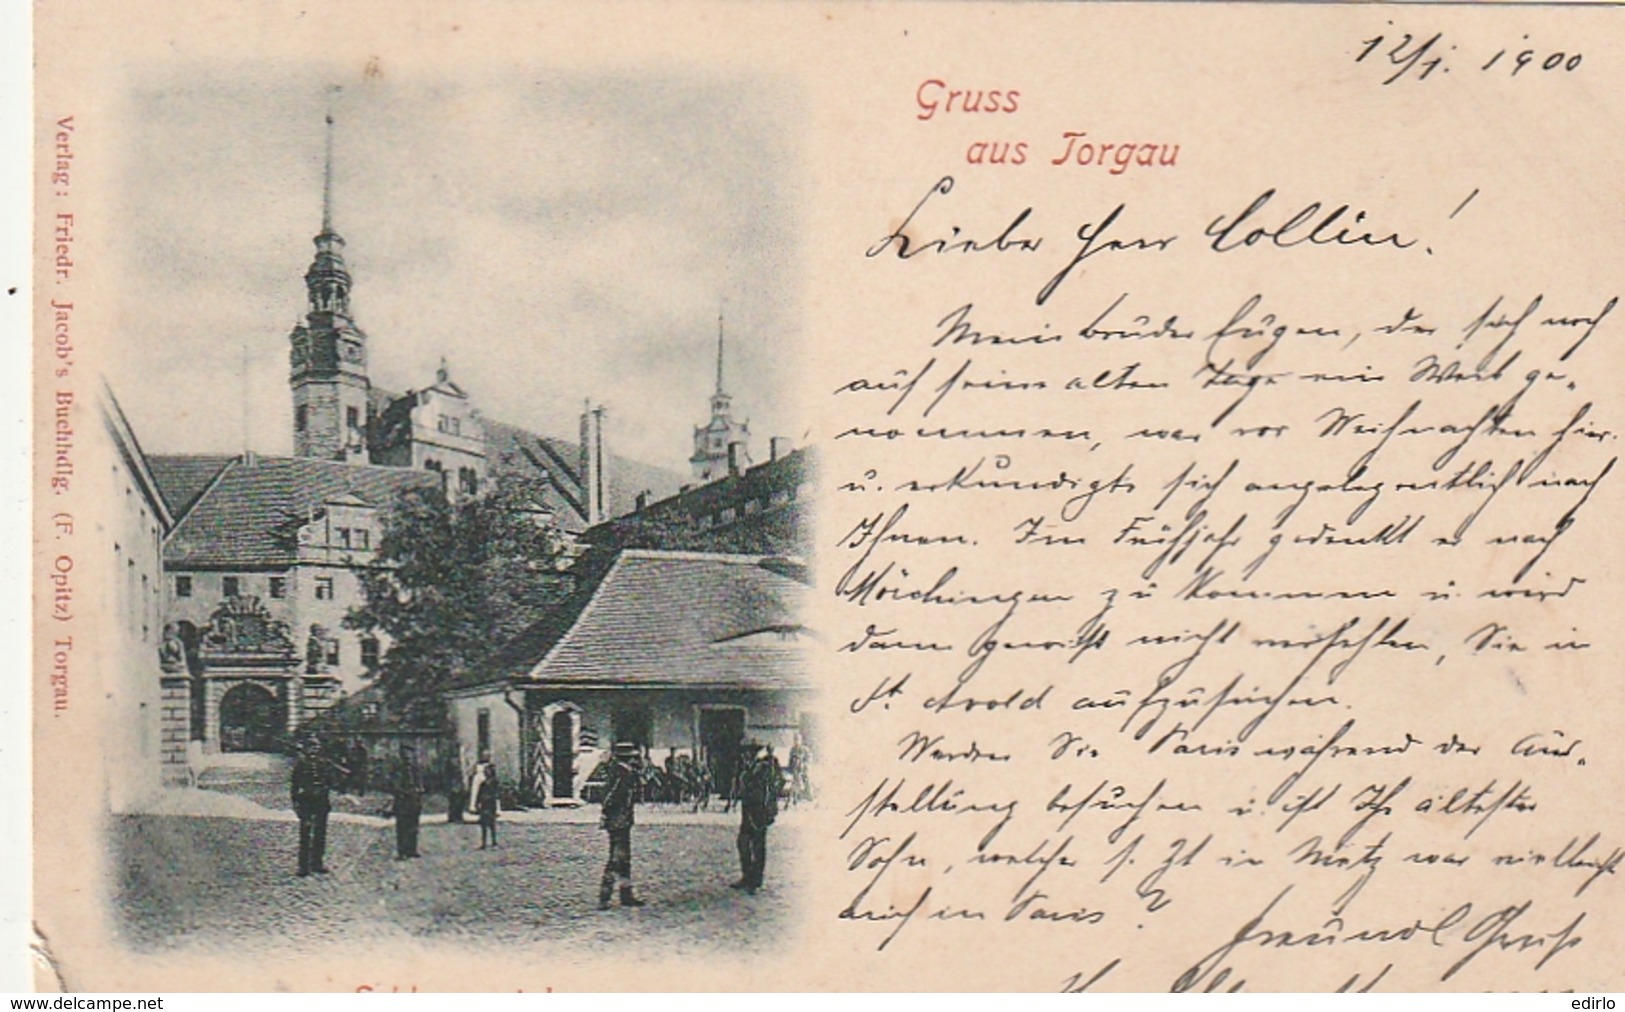 12/1. 1900
Gruss
aus Torgau
Lieber Herr Collin!
Mein Bruder Eugen, der sich noch
auf seine alten Tage ein Weib ge-
nommen, war vor Weihnachten hier
u. erkundigte sich angelegentlich nach
Ihnen. Im Frühjahr gedenkt er nach
Mörchingen zu kommen u. wird
dann gewiß nicht verfehlen, Sie in
St. Avold aufzusuchen.
Werden Sie Paris während der Aus-
stellung besuchen u. ist Ihr ältester
Sohn, welcher s. Zt in Metz war vielleicht
auch in Paris?
Freundl Gruß
Verlag: Friedr. Jacob's Buchhdlg. (F. Opitz) Torgau.
delcampe.net
edirlo